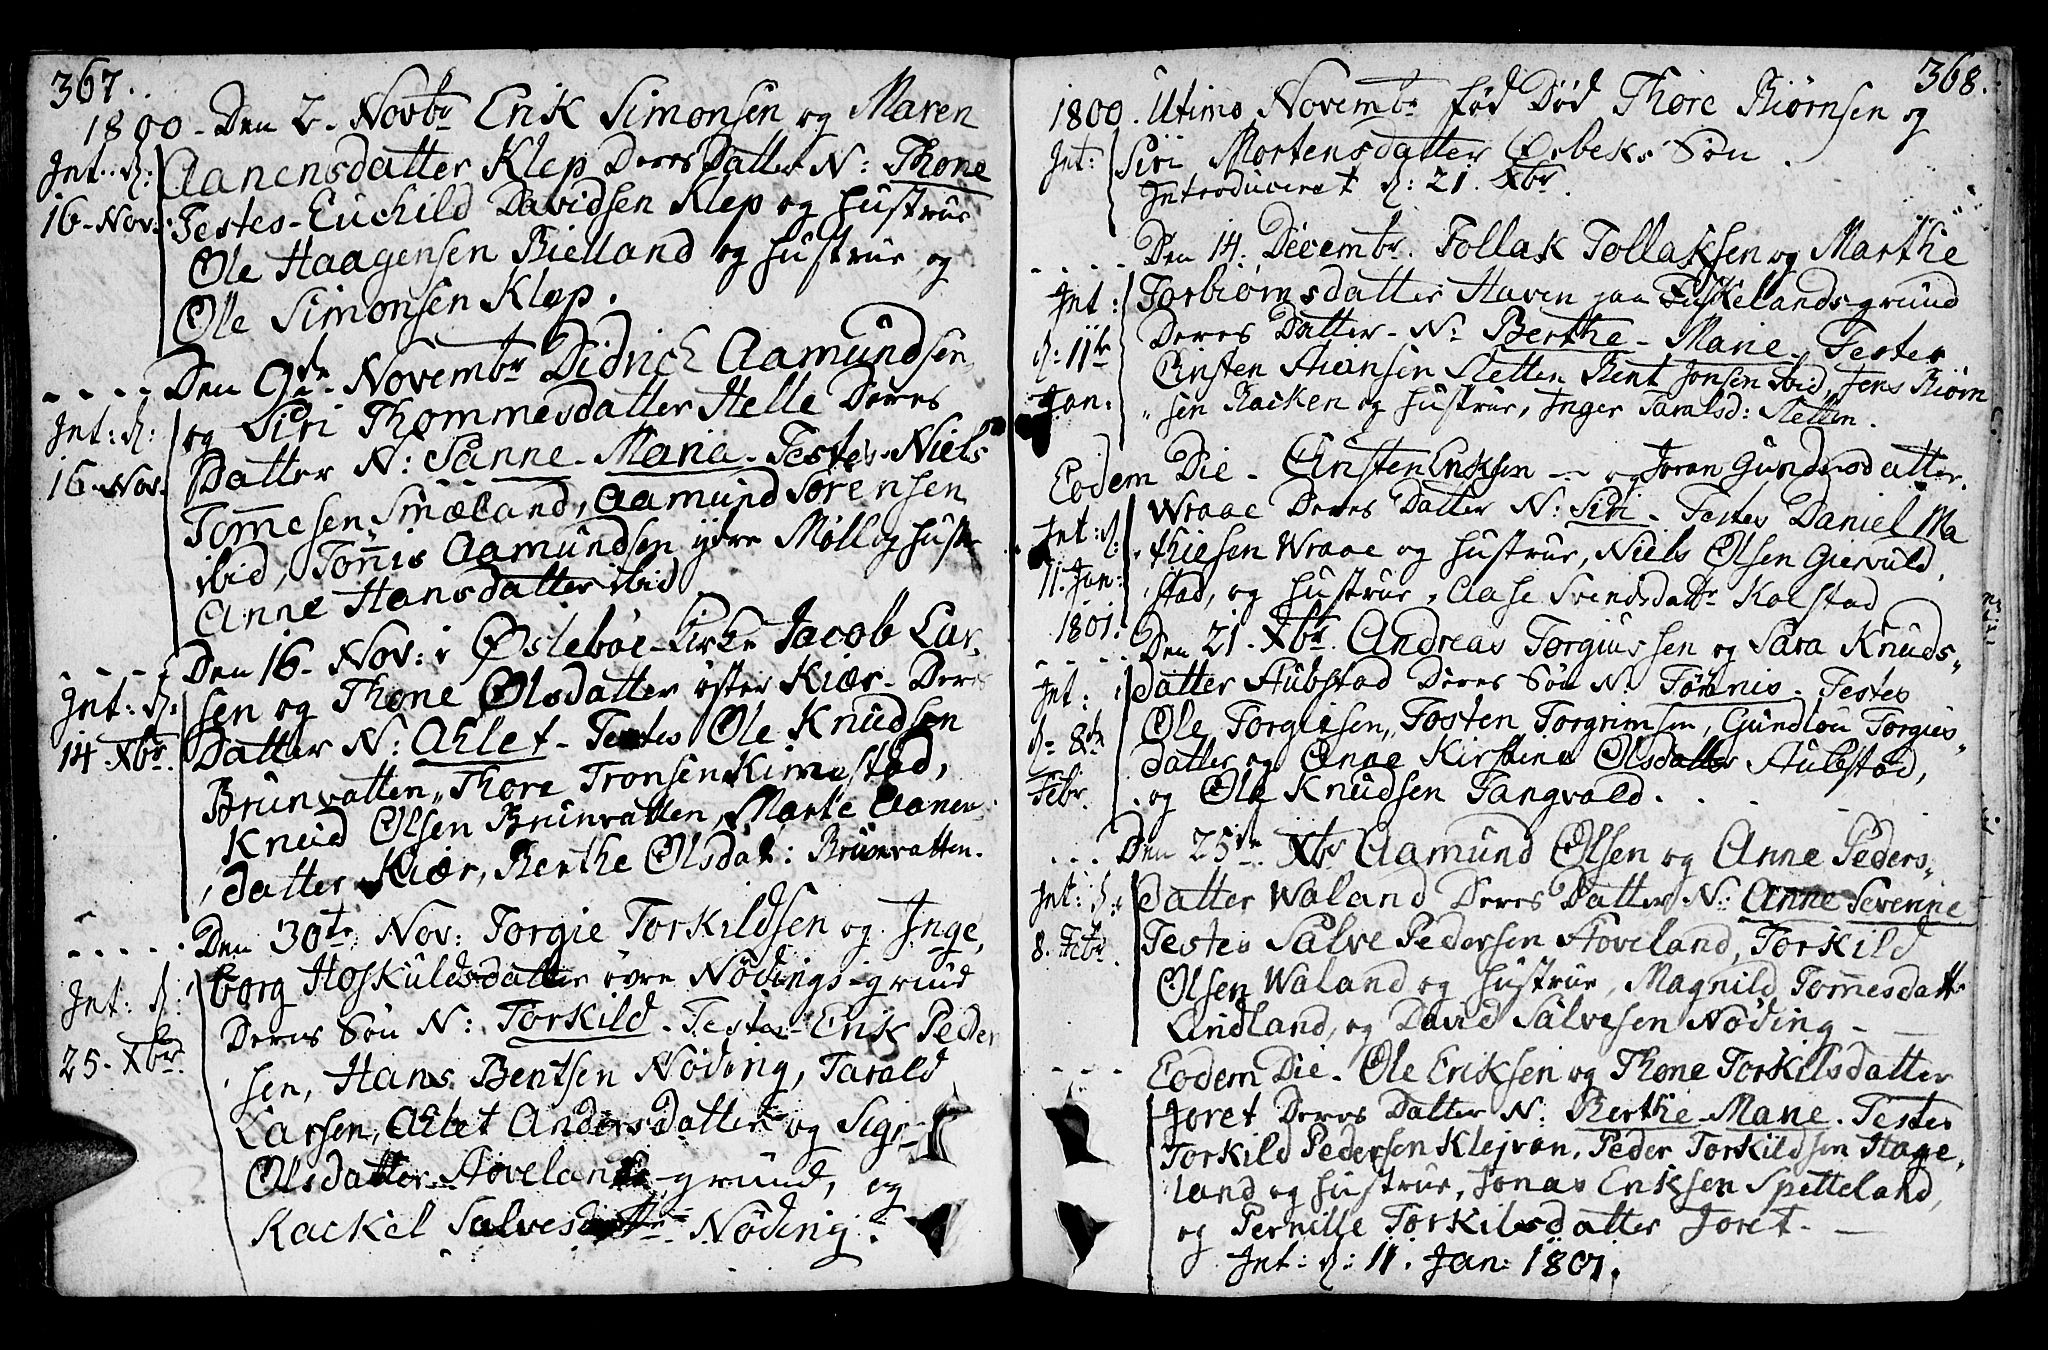 367.
1800 - Den 2. Novbr Erik Simonsen og Maren
Int. d:
16 - Nov.
Aanensdatter Klep Deres Datter N: Thone
Testes - Euchild Davidsen Klep og Hustrue
Ole Haagensen Bielland og Hustrue og
Ole Simonsen Klep.
Den 9de Novembr Didrich Aamundsen
Int: d:
16 - Nov.
og Siri Thommesdatter Helle Deres
Datter N: Sanne - Maria - Testes - Niels
Tom̄esen Smæland, Aamund Sørensen
ibid, Tøn̄is Aamundsen ydre Møll og Hustr
Anne Hansdatter ibid
Den 16 - Nov: i Øslebøe Kirke Jacob Lar-
Int: d:
14. Xbr.
sen og Thone Olsdatter øster Kiær - Deres
Datter N: Ahlet - Testes Ole Knudsen
Brunvatten, Thore Tronsen Kimestad,
Knud Olsen Brunvatten, Marte Aanen
datter Kiær, Berthe Olsdat: Brunvatten.
Den 30te Nov: Torgie Torkildsen og Inge,
Int: d:
25 - Xbr.
borg Hoskuldsdatter øvre Nødings-grund
Deres Søn N: Torkild - Testes - Erik Peder
sen, Hans Bentsen Nøding, Tarald
Larsen, Ahlet Andersdatter og Sigr
Olsdatter Støveland-grund, og
Rackel Salvesdattr Nøding.
368.
1800. Utimo Novembr. fød Død Thore Biørnsen og
Int:
Siri Mortensdatter Øebeks Søn.
Introduceret d: 21. Xbr.
Den 14. Decembr. Tollak Tollaksen og Marthe
Int:
d: 11te
Jan:
Torbiørnsdatter Haven paa Fuskelandsgrund
Deres Datter - N: Berthe - Marie - Testes
Christen Stiansen Sletten Bent Jonsen ibid, Jens Biørn
sen Racken og Hustrue, Inger Taralsd: Sletten.
Eodem Die - Christen Eriksen - og Joran Gundersdatter
Int: d:
11. Jan:
1801.
Wraae Deres Datter N: Siri - Testes Daniel Ma
thiesen Wraae og Hustrue, Niels Olsen Giervald,
stad, og Hustrue, Aase Svendsdattr Kolstad
Den 21. Xbr. Andreas Torgiussen og Sara Knuds
Int:
d - 8de
Febr.
datter Stubstad Deres Søn N: Tønnis - Testes
Ole Torgiesen, Tosten Torgrimsen, Gundlou Torgius
datter og Anne Kirstine Olsdatter Stubstad,
og Ole Knudsen Tangvald.
Den 25de Xbr Aamund Olsen og Anne Peders
Int: d:
8. Febr.
datter Waland Deres Datter N: Anne Severine
Testes Salve Pedersen Støveland, Torkild
Olsen Waland og Hustrue, Magnild Tom̄esdattr
Lindland, og David Salvesen Nøding -
Eodem Die - Ole Eriksen og Thone Torkilsdatter
Joret Deres Datter N: Berthe - Marie. Testes
Torkild Pedersen Klejvan, Peder Torkildsen Hage,
land og Hustrue, Jonas Eriksen Spetteland,
og Pernille Torkilsdatter Joret -
Int: d: 11. Jan: 1801.